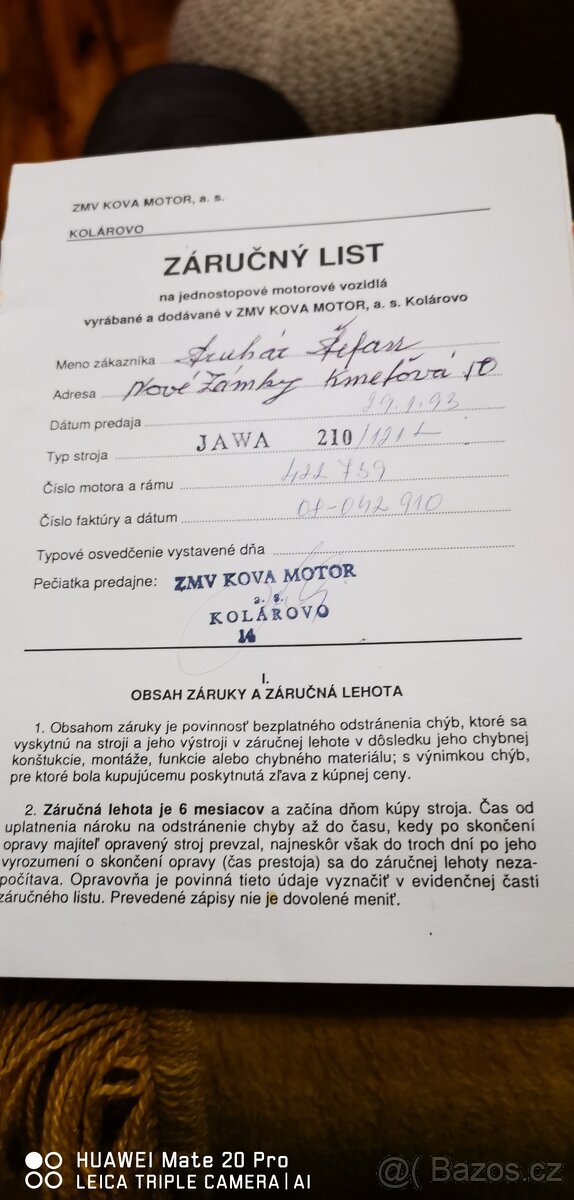 ZMV KOVA MOTOR, a. s.
KOLÁROVO
ZÁRUČNÝ LIST
na jednostopové motorové vozidlá
vyrábané a dodávané v ZMV KOVA MOTOR, a. s. Kolárovo
Meno zákazníka Štefan
Adresa Nové Zámky Kmeťová 10
Dátum predaja 29.1.93
Typ stroja JAWA 210/121L
Číslo motora a rámu 422 739
Číslo faktúry a dátum 08-042 910
Typové osvedčenie vystavené dňa
Pečiatka predajne: ZMV KOVA MOTOR
a. s.
KOLÁROVO
14
I.
OBSAH ZÁRUKY A ZÁRUČNÁ LEHOTA
1. Obsahom záruky je povinnosť bezplatného odstránenia chýb, ktoré sa
vyskytnú na stroji a jeho výstroji v záručnej lehote v dôsledku jeho chybnej
konštukcie, montáže, funkcie alebo chybného materiálu; s výnimkou chýb,
pre ktoré bola kupujúcemu poskytnutá zľava z kúpnej ceny.
2. Záručná lehota je 6 mesiacov a začína dňom kúpy stroja. Čas od
uplatnenia nároku na odstránenie chyby až do času, kedy po skončení
opravy majiteľ opravený stroj prevzal, najneskôr však do troch dní po jeho
vyrozumení o skončení opravy (čas prestoja) sa do záručnej lehoty neza-
počítava. Opravovňa je povinná tieto údaje vyznačiť v evidenčnej časti
záručného listu. Prevedené zápisy nie je dovolené meniť.
HUAWEI Mate 20 Pro
LEICA TRIPLE CAMERA | AI
@( Bazos.cz